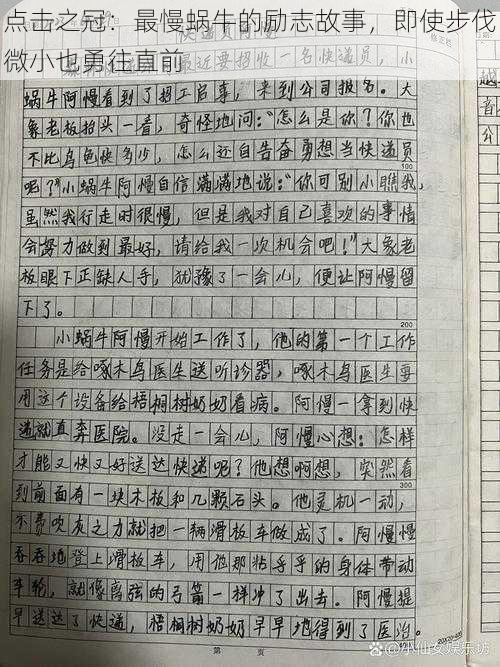 点击之冠：最慢蜗牛的励志故事，即使步伐微小也勇往直前
快递员
最近要招一名快递员，小
蜗牛阿慢看到了招工启事，来到公司报名。大
象老板抬头一看，奇怪地问：“怎么是你？你也
不比乌龟快多少，怎么还自告奋勇想当快递员
100
呢？”小蜗牛阿慢自信满满地说：“你可别小瞧我，
虽然我行走时很慢，但是我对自己喜欢的事情
会努力做到最好，请给我一次机会吧！”大象老
板眼下正缺人手，犹豫了一会儿，便让阿慢留
下了。
200
小蜗牛阿慢开始工作了，他的第一个工作
任务是给啄木鸟医生送听诊器，啄木鸟医生要
用这个设备给梧桐树奶奶看病。阿慢一拿到快
递就直奔医院。没走一会儿，阿慢心想：怎样
才能又快又好送达快递呢？他想啊想，突然看
300
到前面有一块木板和几颗石头。他灵机一动，
不费吹灰之力就把一辆滑板车做成了。阿慢慢
吞吞地登上滑板车，用他那粘乎乎的身体带动
车轮，就像离弦的弓箭一样冲了出去。阿慢提
早送达了快递，梧桐树奶奶早早地得到了医治。
第 页
@小仙女娱乐坊